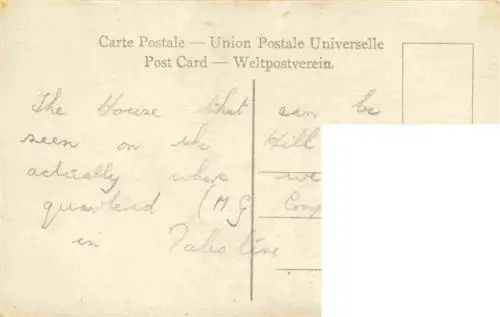 Carte Postale — Union Postale Universelle
Post Card — Weltpostverein.
The House that can be
seen on the Hill
actually where we
quartered (M G Comp
in